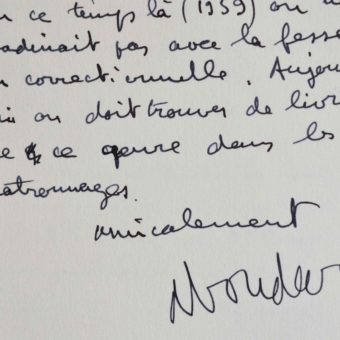 n ce temps là (1959) on n
adinait pas avec la fesse
n correctionnelle. Aujou
ui on doit trouver de livr
e ce genre dans les
atronnages.
amicalement